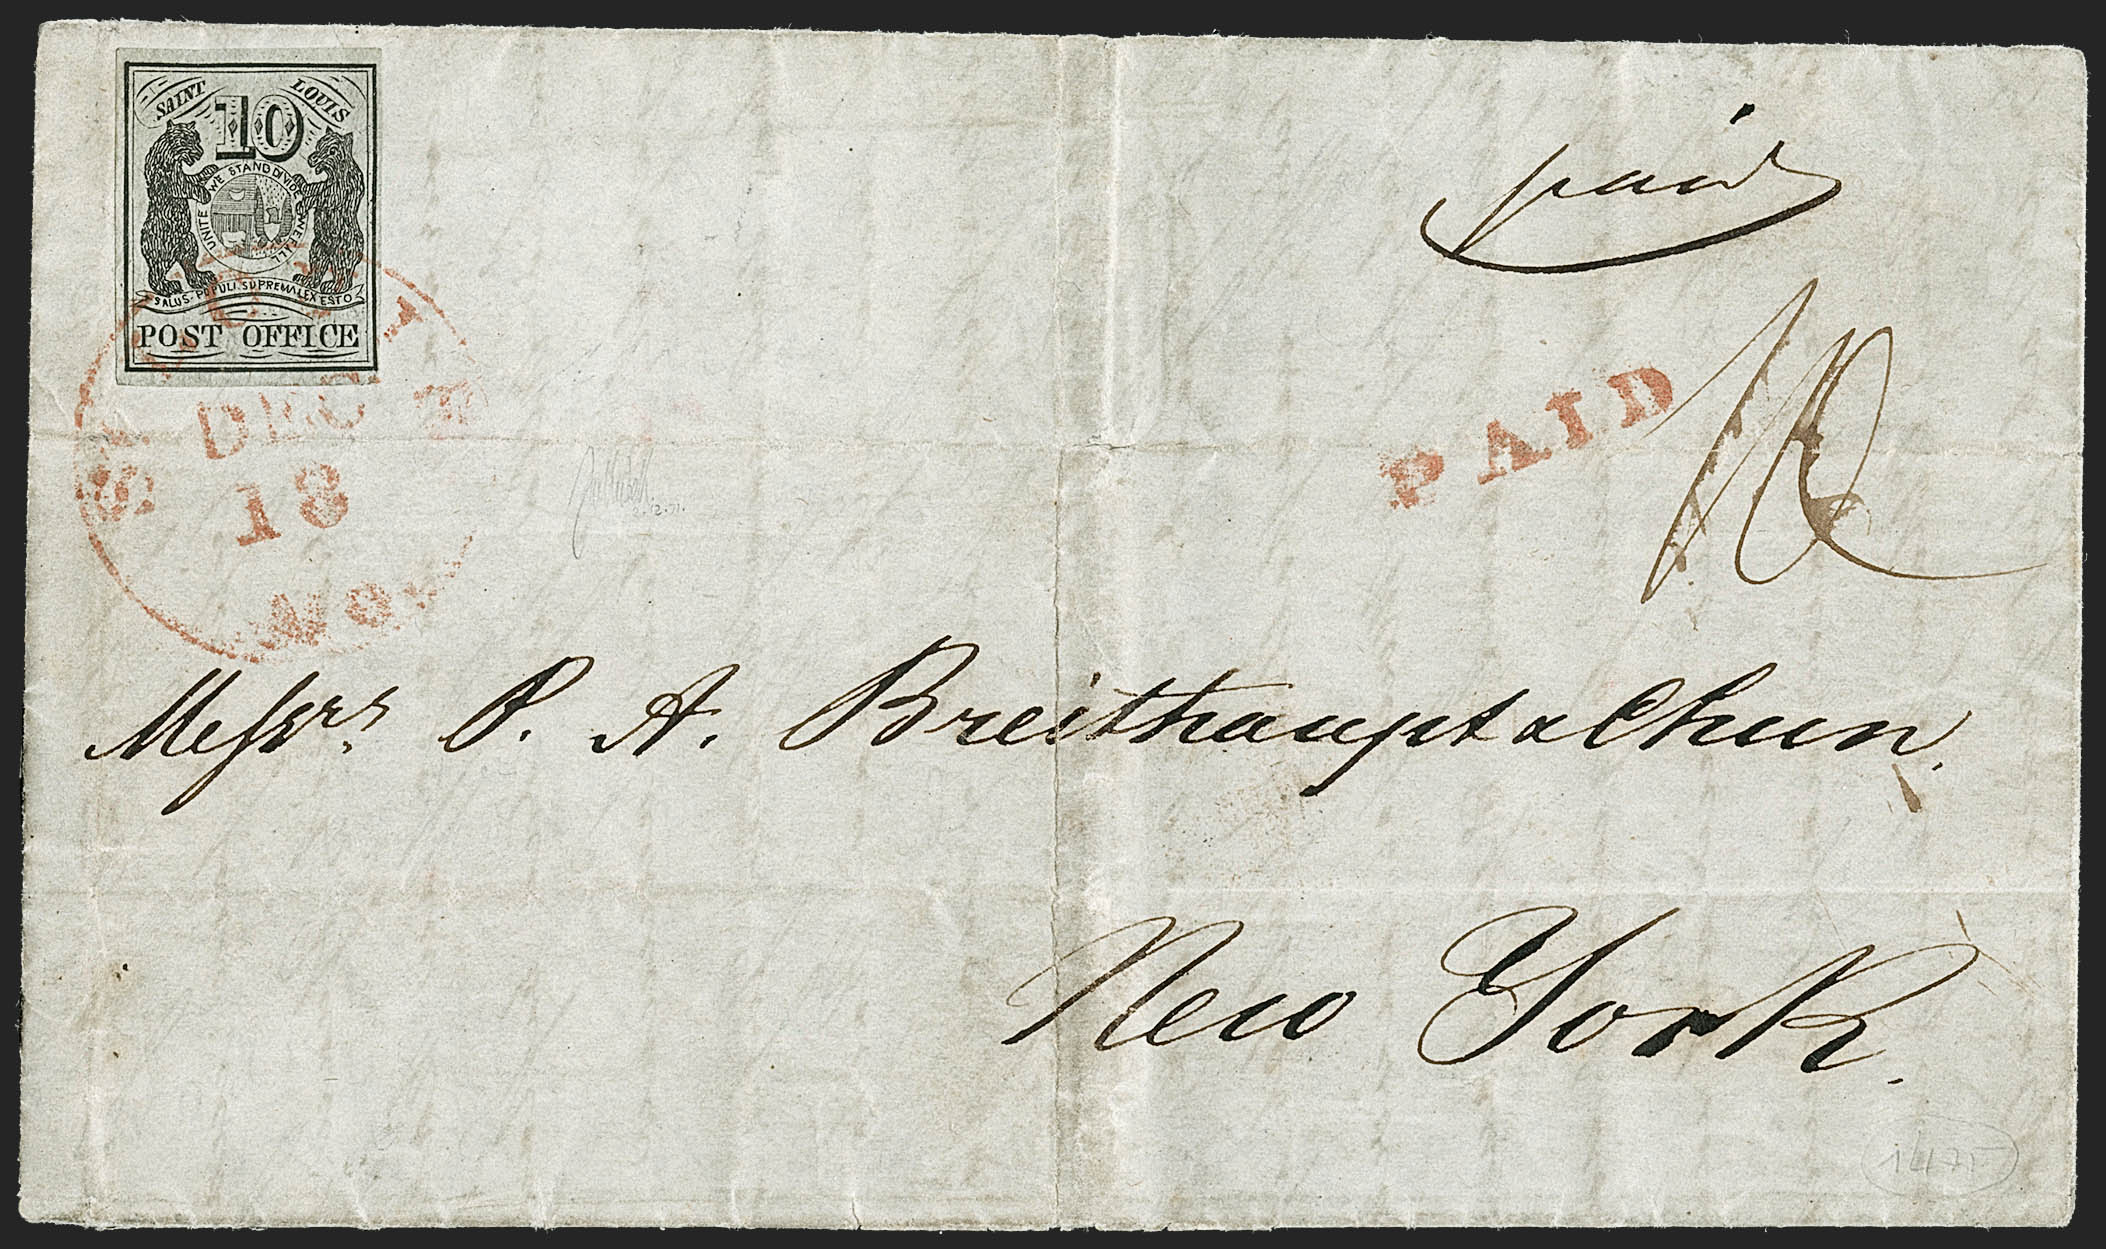 SAINT LOUIS
10
UNITED WE STAND DIVIDED WE FALL
SALUS POPULI SUPREMA LEX ESTO
POST OFFICE
paid
PAID
10
DEC
18
Mo.
Messrs. P. A. Breithaupt & Chun
New York.
1475